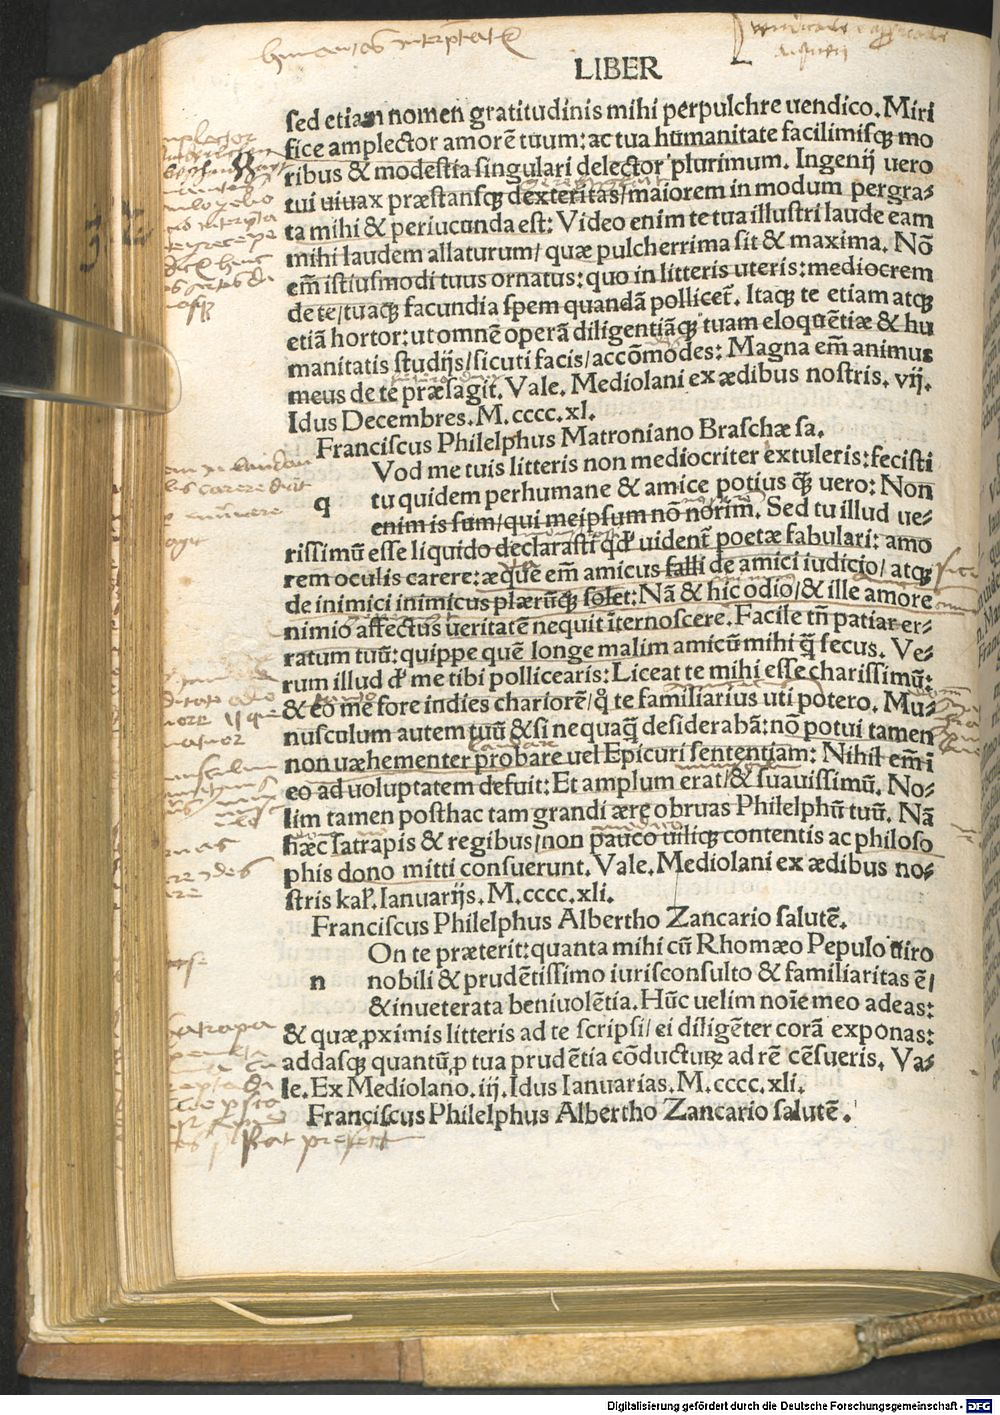 humanitas
LIBER
sed etiam nomen gratitudinis mihi perpulchre uendico. Miri
fice amplector amorē tuum: ac tua humanitate facilimisq; mo
ribus & modestia singulari delector plurimum. Ingenij uero
tui uiuax præstansq; dexteritas/maiorem in modum pergra-
ta mihi & periucunda est: Video enim te tua illustri laude eam
mihi laudem allaturum/ quæ pulcherrima sit & maxima. Nō
em̄ istiusmodi tuus ornatus: quo in litteris uteris: mediocrem
de te/tuaq; facundia spem quandā pollicet̄. Itaq; te etiam atq;
etiā hortor: ut omnē operā diligentiāq; tuam eloquētiæ & hu
manitatis studijs/sicuti facis/accōmodes: Magna em̄ animus
meus de te præsagit. Vale. Mediolani ex ædibus nostris. vij.
Idus Decembres. M. cccc. xl.
Franciscus Philelphus Matroniano Braschæ sa.
Vod me tuis litteris non mediocriter extuleris: fecisti
q tu quidem perhumane & amice potius q̄ uero: Non
enim is sum/qui meipsum nō norim. Sed tu illud ue-
rissimū esse liquido declarasti qd' uident̄ poetæ fabulari: amo
rem oculis carere: æque em̄ amicus falli de amici iudicio/ atq;
de inimici inimicus plærūq; solet: Nā & hic odio/& ille amore
nimio affectus ueritatē nequit īternoscere. Facile tn̄ patiar er-
ratum tuū: quippe quē longe malim amicū mihi q̄ secus. Ve-
rum illud qd' me tibi pollicearis: Liceat te mihi esse charissimū:
& eo me fore indies chariorē/ q̊ te familiarius uti potero. Mu-
nusculum autem tuū & si nequaq̄ desiderabā: nō potui tamen
non uæhementer probare uel Epicuri sententiam: Nihil em̄ ī
eo ad uoluptatem defuit: Et amplum erat/& suauissimū. No-
lim tamen posthac tam grandi ære obruas Philelphū tuū. Nā
hæc satrapis & regibus/non pauco uiliq; contentis ac philoso
phis dono mitti consuerunt. Vale. Mediolani ex ædibus no-
stris kal'. Ianuarijs. M. cccc. xli.
Franciscus Philelphus Albertho Zancario salutē.
On te præterit: quanta mihi cū Rhomæo Pepulo uiro
n nobili & prudētissimo iurisconsulto & familiaritas ē/
& inueterata beniuolētia. Hūc uelim noīe meo adeas:
& quæ ꝓximis litteris ad te scripsi/ ei diligēter corā exponas:
addasq; quantū ꝓ tua prudētia cōductuꝝ ad rē cēsueris. Va-
le. Ex Mediolano. iij. Idus Ianuarias. M. cccc. xli.
Franciscus Philelphus Albertho Zancario salutē.
Digitalisierung gefördert durch die Deutsche Forschungsgemeinschaft - DFG